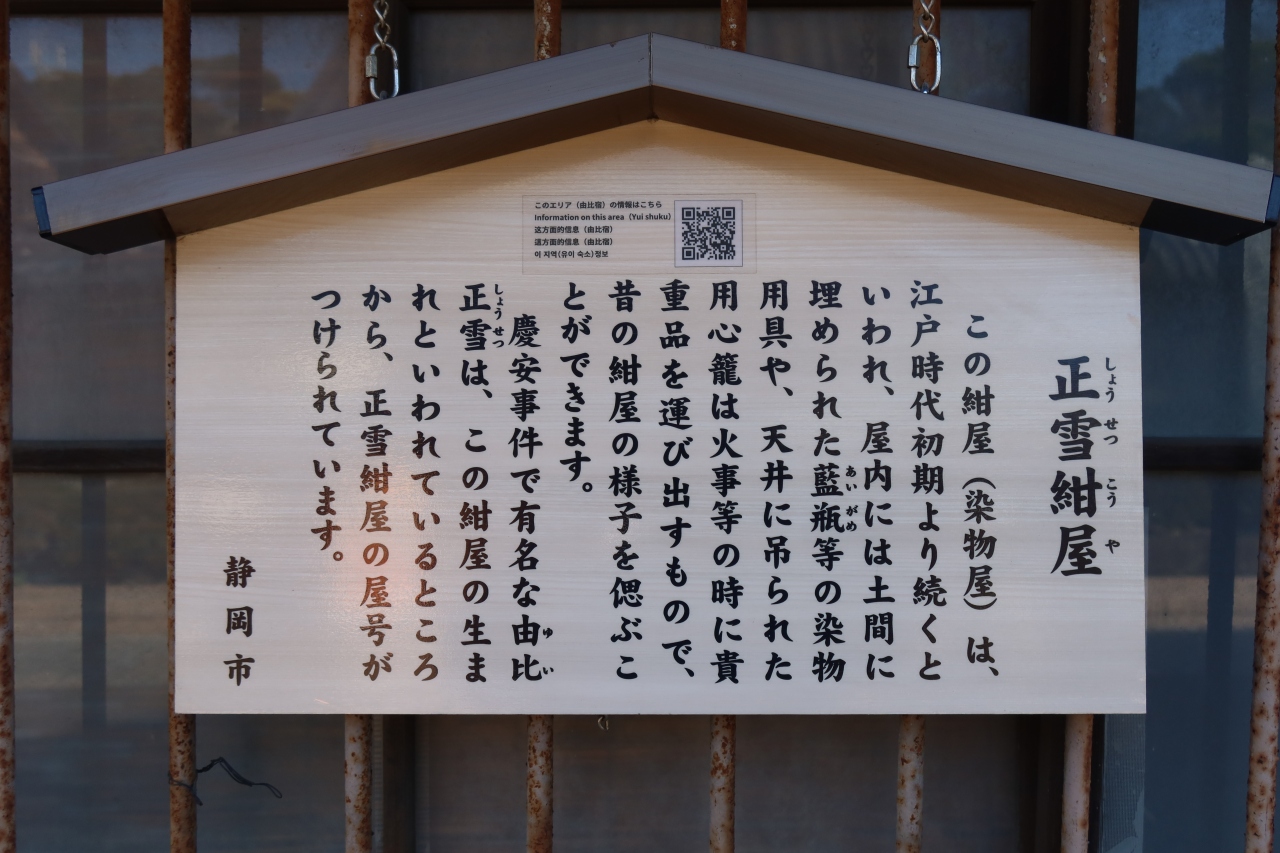 このエリア（由比宿）の情報はこちら
Information on this area（Yui shuku）
这方面的信息（由比宿）
這方面的信息（由比宿）
이 지역(유이 숙소)정보
正雪紺屋
しょうせつこうや
この紺屋（染物屋）は、
江戸時代初期より続くと
いわれ、屋内には土間に
埋められた藍瓶等の染物
あいがめ
用具や、天井に吊られた
用心籠は火事等の時に貴
重品を運び出すもので、
昔の紺屋の様子を偲ぶこ
とができます。
慶安事件で有名な由比
ゆい
正雪は、この紺屋の生ま
しょうせつ
れといわれているところ
から、正雪紺屋の屋号が
つけられています。
静岡市